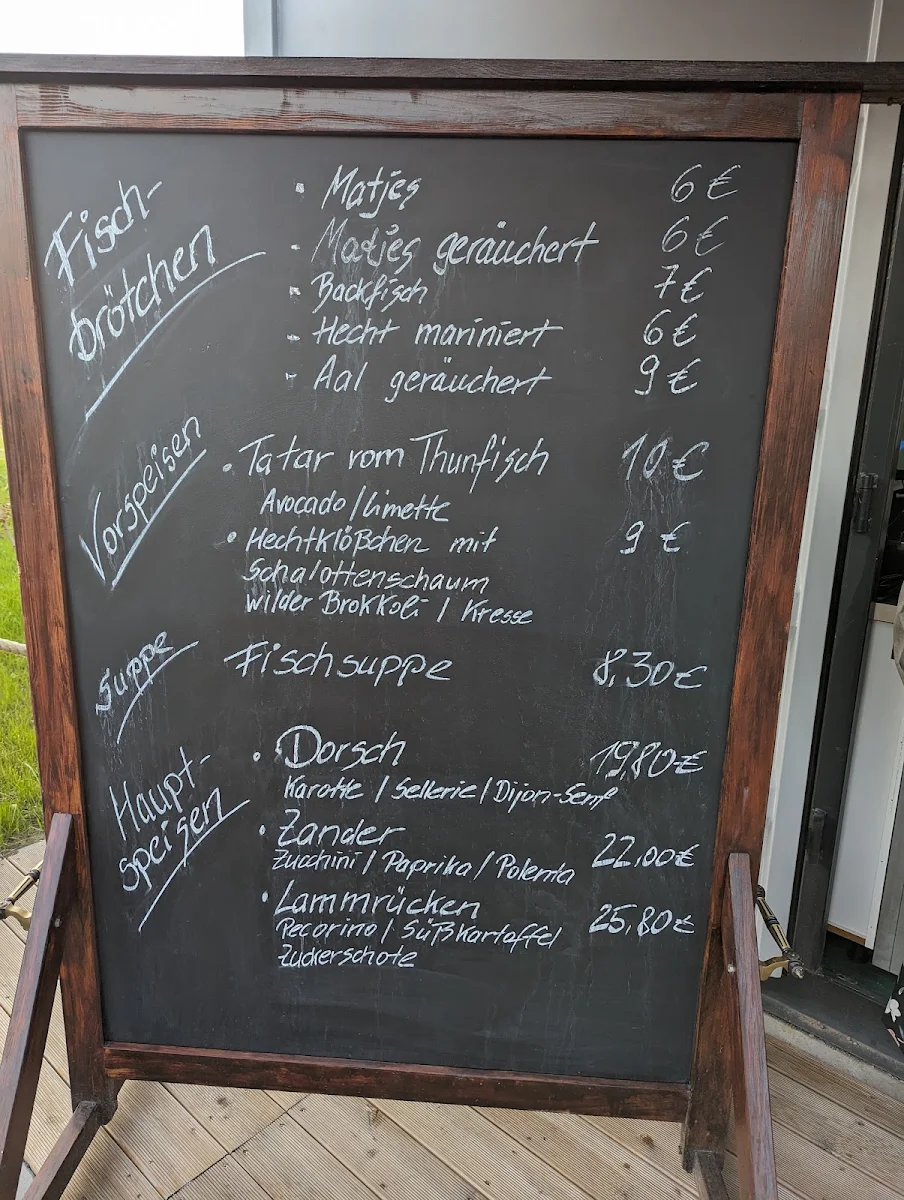 Fisch-
brötchen
• Matjes 6 €
- Matjes geräuchert 6 €
- Backfisch 7 €
- Hecht mariniert 6 €
- Aal geräuchert 9 €
Vorspeisen
• Tatar vom Thunfisch 10 €
Avocado / Limette
• Hechtklößchen mit 9 €
Schalottenschaum
wilder Brokkoli / Kresse
Suppe
Fischsuppe 8,30 €
Haupt-
speisen
• Dorsch 19,80 €
Karotte / Sellerie / Dijon-Senf
• Zander 22,00 €
Zucchini / Paprika / Polenta
• Lammrücken 25,80 €
Pecorino / Süßkartoffel
Zuckerschote